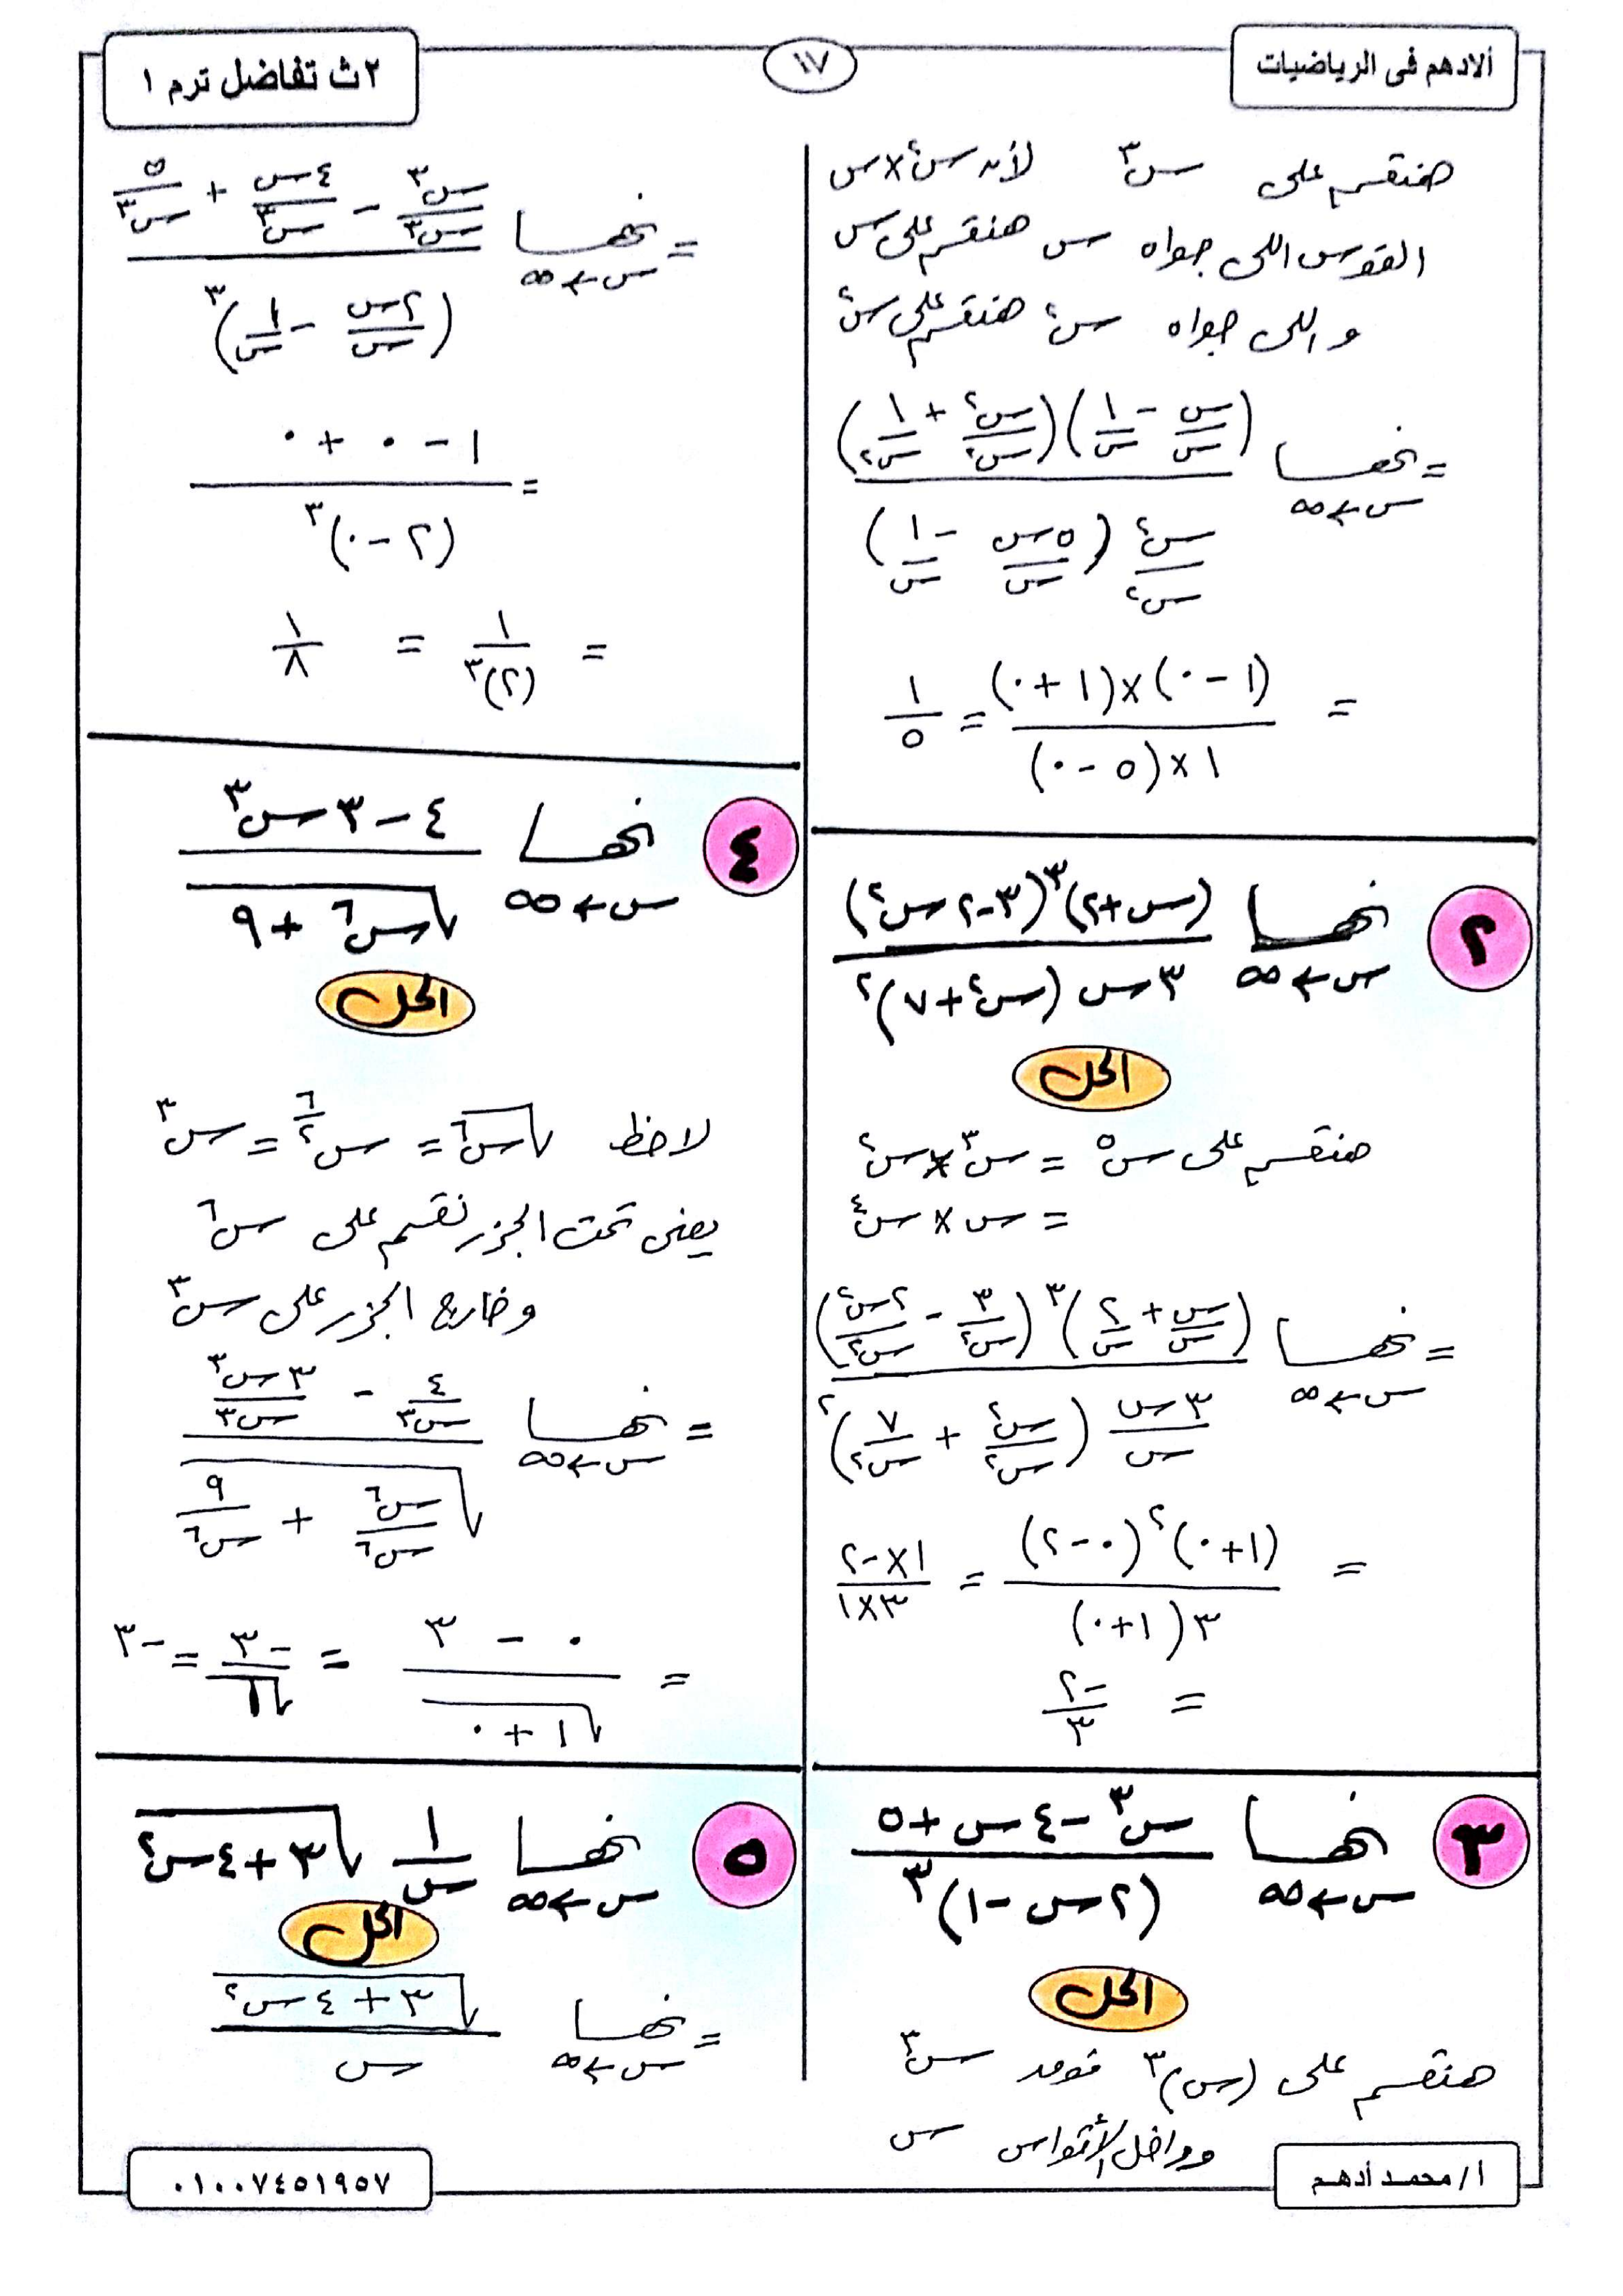 ألادهم فى الرياضيات
١٧
٢ث تفاضل ترم ١
هنقسم على س^٣ لأنه س^٢ × س
القوس اللى جواه س هنقسم على س
و اللى جواه س^٢ هنقسم على س^٢
= نهــا س←∞ (س/س - ١/س)(س^٢/س^٢ + ١/س^٢) / س^٢/س^٢ (٥س/س - ١/س)
= (١ - ٠) × (١ + ٠) / ١ × (٥ - ٠) = ١/٥
٢ نهــا س←∞ (س + ٢)^٣ (٣ - ٢س^٢) / ٣س (س^٢ + ٧)^٢
الحل
هنقسم على س^٥ = س^٣ × س^٢
= س × س^٤
= نهــا س←∞ (س/س + ٢/س)^٣ (٣/س^٢ - ٢س^٢/س^٢) / ٣س/س (س^٢/س^٢ + ٧/س^٢)^٢
= (١ + ٠)^٢ (٠ - ٢) / ٣ (١ + ٠) = ١ × -٢ / ٣ × ١
= -٢/٣
٣ نهــا س←∞ س^٣ - ٤س + ٥ / (٢س - ١)^٣
الحل
هنقسم على (س)^٣ فوق س^٣
وداخل الأقواس س
= نهــا س←∞ س^٣/س^٣ - ٤س/س^٣ + ٥/س^٣ / (٢س/س - ١/س)^٣
= ١ - ٠ + ٠ / (٢ - ٠)^٣
= ١/(٢)^٣ = ١/٨
٤ نهــا س←∞ ٤ - ٣س^٣ / √(س^٦ + ٩)
الحل
لاحظ √س^٦ = س^(٦/٢) = س^٣
يعنى تحت الجزر نقسم على س^٦
وخارج الجزر على س^٣
= نهــا س←∞ ٤/س^٣ - ٣س^٣/س^٣ / √(س^٦/س^٦ + ٩/س^٦)
= ٠ - ٣ / √(١ + ٠) = -٣/√١ = -٣
٥ نهــا س←∞ ١/س √(٣ + ٤س^٢)
الحل
= نهــا س←∞ √(٣ + ٤س^٢) / س
أ/ محمـد أدهـم
٠١٠٠٧٤٥١٩٥٧